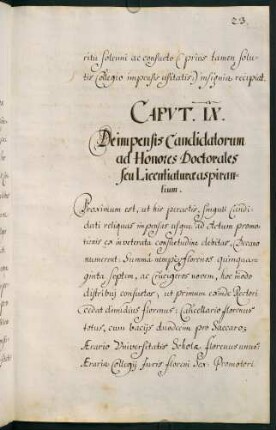 23.
ritu solenni ac consueto (prius tamen solu-
tis Collegio impensis usitatis) insignia recipiat.
CAPVT. IX.
De impensis Candidatorum
ad Honores Doctorales
seu Licentiaturæ aspiran-
tium.
Proximum est, ut his peractis, singuli Candi-
dati reliquas impensas usque ad Actum promo-
tionis ex inveterata consuetudine debitas, Decano
numerent: Summa nempe florenos quinquagi-
inta septem, ac Crucigeros novem, hoc modo
distribui consuetos, ut primum eonde Rectori
cedat dimidius florenus: Cancellario florenus
totus, cum bacijs duodecim pro Saccaro;
Ærario Vniversitatis Scholæ florenus unus,
Ærario Collegij Juris floreni sex: Promotori